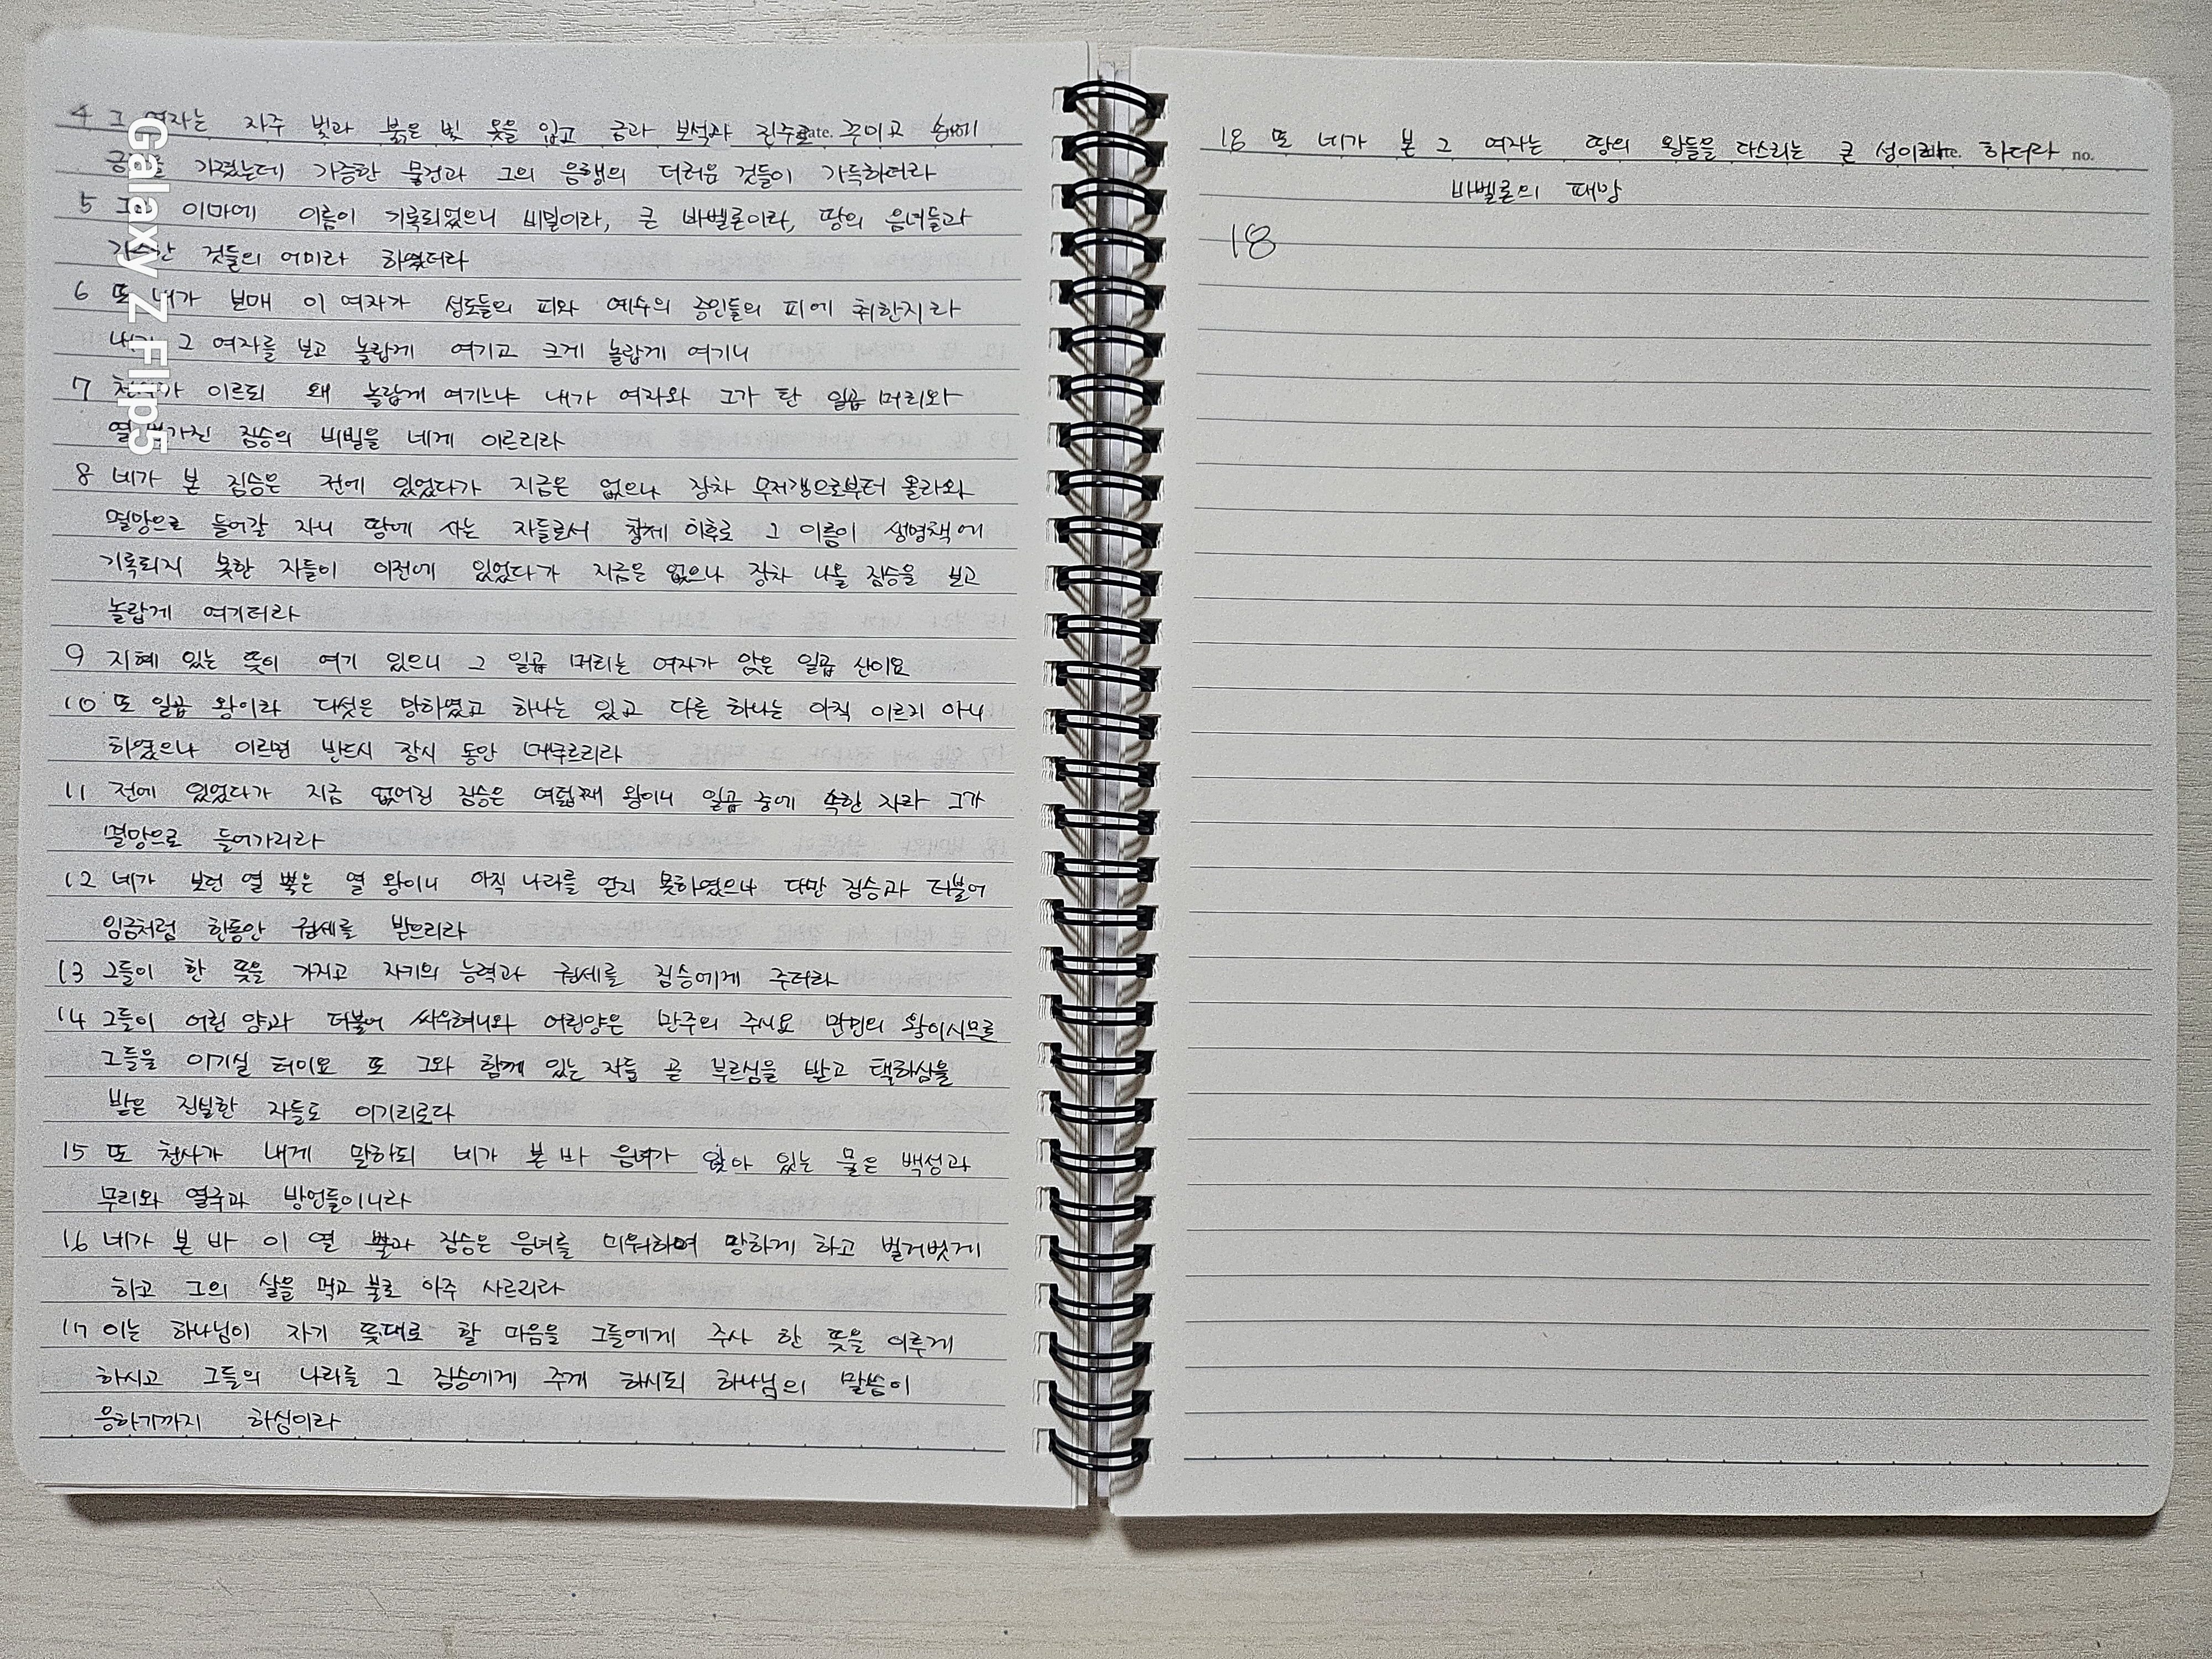 4 그 여자는 자주 빛과 붉은 빛 옷을 입고 금과 보석과 진주로 꾸미고 손에
가졌는데 가증한 물건과 그의 음행의 더러운 것들이 가득하더라
5 이마에 이름이 기록되었으니 비밀이라, 큰 바벨론이라, 땅의 음녀들과
것들의 어미라 하였더라
6 또 내가 보매 이 여자가 성도들의 피와 예수의 증인들의 피에 취한지라
그 여자를 보고 놀랍게 여기고 크게 놀랍게 여기니
7 이르되 왜 놀랍게 여기느냐 내가 여자와 그가 탄 일곱 머리와
열 가진 짐승의 비밀을 네게 이르리라
8 네가 본 짐승은 전에 있었다가 지금은 없으나 장차 무저갱으로부터 올라와
멸망으로 들어갈 자니 땅에 사는 자들로서 창세 이후로 그 이름이 생명책에
기록되지 못한 자들이 이전에 있었다가 지금은 없으나 장차 나올 짐승을 보고
놀랍게 여기리라
9 지혜 있는 뜻이 여기 있으니 그 일곱 머리는 여자가 앉은 일곱 산이요
10 또 일곱 왕이라 다섯은 망하였고 하나는 있고 다른 하나는 아직 이르지 아니
하였으나 이르면 반드시 잠시 동안 머무르리라
11 전에 있었다가 지금 없어진 짐승은 여덟째 왕이니 일곱 중에 속한 자라 그가
멸망으로 들어가리라
12 네가 보던 열 뿔은 열 왕이니 아직 나라를 얻지 못하였으나 다만 짐승과 더불어
임금처럼 한동안 권세를 받으리라
13 그들이 한 뜻을 가지고 자기의 능력과 권세를 짐승에게 주더라
14 그들이 어린 양과 더불어 싸우려니와 어린양은 만주의 주시요 만민의 왕이시므로
그들을 이기실 터이요 또 그와 함께 있는 자들 곧 부르심을 받고 택하심을
받은 진실한 자들도 이기리로다
15 또 천사가 내게 말하되 네가 본 바 음녀가 앉아 있는 물은 백성과
무리와 열국과 방언들이니라
16 네가 본 바 이 열 뿔과 짐승은 음녀를 미워하여 망하게 하고 벌거벗게
하고 그의 살을 먹고 불로 아주 사르리라
17 이는 하나님이 자기 뜻대로 할 마음을 그들에게 주사 한 뜻을 이루게
하시고 그들의 나라를 그 짐승에게 주게 하시되 하나님의 말씀이
응하기까지 하심이라
Galaxy Z Flip5
18 또 네가 본 그 여자는 땅의 왕들을 다스리는 큰 성이라 하더라 no.
바벨론의 패망
18